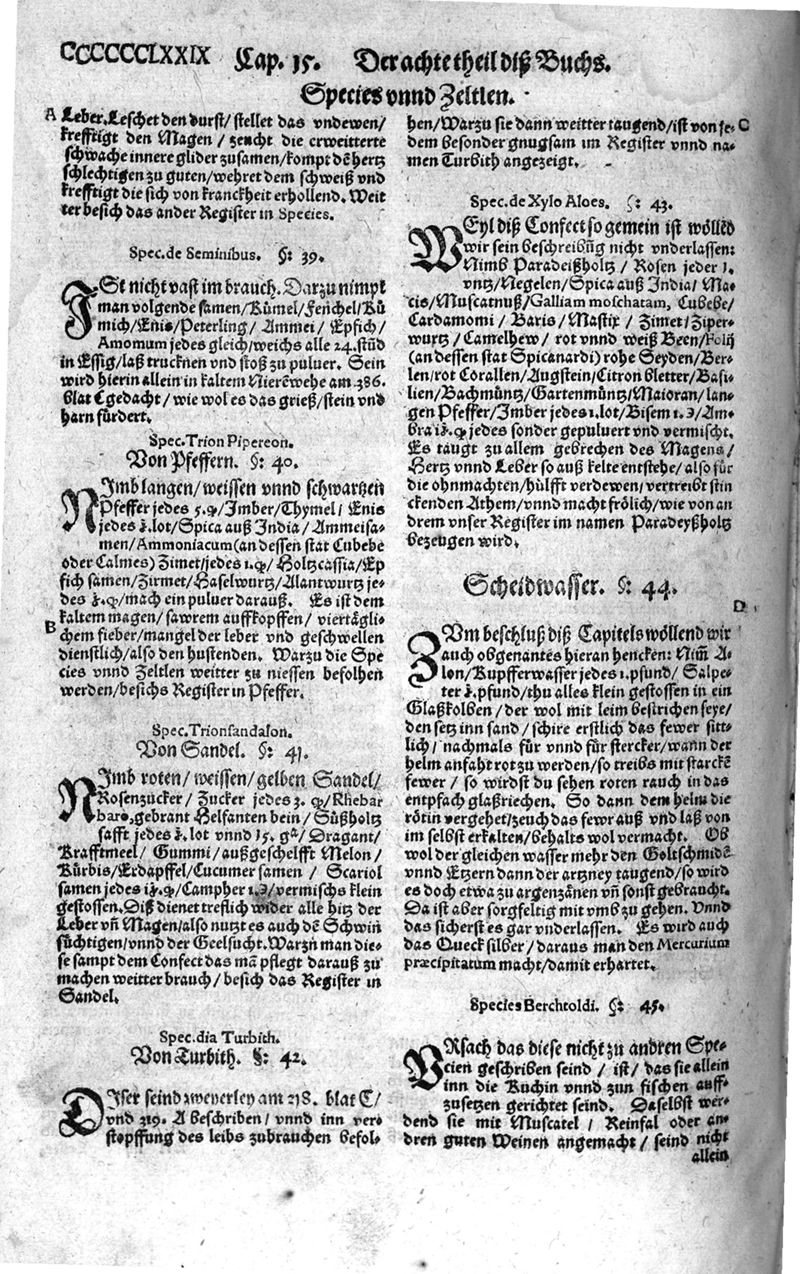 CCCCCCLXXIX Cap. 15. Der achte theil diß Buchs.
Species vnnd Zeltlen.
A
Leber. Leschet den durst/ stellet das vndewen/
krefftigt den Magen / zeucht die erweitterte
schwache innere glider zusamen/kompt dē hertz
schlechtigen zu guten/wehret dem schweiß vnd
krefftigt die sich von kranckheit erhollend. Weit
ter besich das ander Register in Species.
Spec. de Seminibus. §: 39.
ISt nicht vast im brauch. Darzu nimpt
man volgende samen/Kümel/Fenchel/Kü
mich/Enis/Peterling/ Ammei/ Epfich/
Amomum jedes gleich/weichs alle 24. stūd
in Essig/laß trucknen vnd stoß zu puluer. Sein
wird hierin allein in kaltem Nierēwehe am 386.
blat C gedacht/ wie wol es das grieß/stein vnd
harn fürdert.
Spec. Trion Pipereon.
Von Pfeffern. §: 40.
NImb langen/weissen vnnd schwartzen
Pfeffer jedes 5.q/Imber/Thymel/ Enis
jedes ʒ.lot/Spica auß India/ Ammeisa-
men/Ammoniacum(an dessen stat Cubebe
oder Calmes) Zimet/jedes 1.q/ Holtzcassia/Ep
fich samen/Zirmet/Haselwurtz/Alantwurtz je-
des ʒ.q/mach ein puluer darauß. Es ist dem
kaltem magen/ sawrem auffkopffen/ viertägli-
B
chem fieber/mangel der leber vnd geschwellen
dienstlich/also den hustenden. Warzu die Spe
cies vnd Zeltlen weitter zu niessen befolhen
werden/besichs Register in Pfeffer.
Spec. Trionsandalon.
Von Sandel. §: 41.
NImb roten/ weissen/ gelben Sandel/
Rosenzucker/ Zucker jedes 3. q/Rhebar
baro, gebrant Helfanten bein/ Süßholtz
safft jedes ʒ.lot vnnd 15. gᵃ/ Dragant/
Krafftmeel/ Gummi/ außgeschelfft Melon/
Kürbis/Erdapffel/Cucumer samen / Scariol
samen jedes iʒ.q/Campher 1.Э/vermischs klein
gestossen. Diß dienet treflich wider alle hitz der
Leber vn̄ Magen/also nutzt es auch dē Schwin
süchtigen/vnnd der Geelsucht. Warzu man die-
se sampt dem Confect das mā pflegt darauß zu
machen weitter brauch/ besich das Register in
Sandel.
Spec. dia Turbith.
Von Turbith. §: 42.
DIser seind zweyerley am 218. blat C/
vnd 219. A beschriben/ vnnd inn ver-
stopffung des leibs zubrauchen befol-
hen/Warzu sie dann weitter taugend/ist von je-
C
dem besonder gnugsam im Register vnnd na-
men Turbith angezeigt.
Spec. de Xylo Aloes. §: 43.
WEyl diß Confect so gemein ist wöllēd
wir sein beschreibūg nicht vnderlassen:
Nimb Paradeißholtz / Rosen jeder 1.
vntz/Negelen/Spica auß India/ Ma-
cis/Muscatnuß/Galliam moschatam, Cubebe/
Cardamomi / Baris/ Mastix / Zimet/Ziper-
wurtz/ Camelhew/ rot vnnd weiß Been/Folij
(an dessen stat Spicanardi) rohe Seyden/Ber-
len/rot Corallen/Augstein/Citron bletter/Basi-
lien/Bachmüntz/Gartenmüntz/Maioran/lan-
gen Pfeffer/Imber jedes 1.lot/Bisem 1.Э/Am-
bra iʒ.q jedes sonder gepuluert vnd vermischt.
Es taugt zu allem gebrechen des Magens/
Hertz vnnd Leber so auß kelte entstehe/also für
die ohnmachten/hülfft verdewen/vertreibt stin
ckenden Athem/vnnd macht frölich/wie von an
drem vnser Register im namen Paradeyßholtz
bezeugen wird.
Scheidwasser. §: 44.
D
ZVm beschluß diß Capitels wöllend wir
auch obgenantes hieran hencken: Nim̄ A-
lon/Kupfferwasser jedes 1.pfund/ Salpe-
ter ʒ.pfund/thu alles klein gestossen in ein
Glaßkolben/der wol mit leim bestrichen seye/
den setz inn sand/ schire erstlich das fewer sitt-
lich/ nachmals für vnnd für stercker/wann der
helm anfaht rot zu werden/so treibs mit starckē
fewer/ so wirdst du sehen roten rauch in das
entpfach glaß riechen. So dann dem helm die
rötin vergehet/zeuch das fewr auß vnd laß von
im selbst erkalten/behalts wol vermacht. Ob
wol der gleichen wasser mehr den Goltschmidē
vnnd Etzern dann der artzney taugend/so wird
es doch etwa zu argenzänen vn̄ sonst gebraucht.
Da ist aber sorgfeltig mit vmb zu gehen. Vnnd
das sicherst es gar vnderlassen. Es wird auch
das Quecksilber/ daraus man den Mercurium
præcipitatum macht/damit erhartet.
Species Berchtoldi. §: 45.
VRsach das diese nicht zu andren Spe-
cien geschriben seind / ist / das sie allein
inn die Kuchin vnnd zun fischen auff-
zusetzen gerichtet seind. Daselbst wer-
dend sie mit Muscatel/ Reinfal oder an-
dren guten Weinen angemacht/ seind nicht
allein